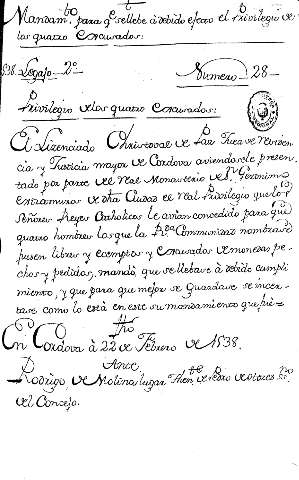 Mandam.to para q.e se llebe à debido efecto el Privilegio de
los quatro Escusados:
538. Legajo 2º Numero 28
Privilegio de los quatro Escusados:
El Lizenciado Christoval de Paz Juez de residen
cia y Justicia mayor de Cordova aviendosele presen
tado por parte del Real Monasterio de S.n Geronimo
extramuros de dha Ciudad el Real Privilegio que los
Señores Reyes Catholicos le avian concedido para que
quatro hombres los que la R.da Communidad nombrase
fuesen libres y exemptos y escusados de monedas pe
chos y pedidos, mandò que se llebase à debido cumpli
miento, y que para que mejor se guardase se incer
tase como lo està en este su mandamiento que
fho
En Cordova à 22 de Febrero de 1538.
Ante
Rodrigo de Molina lugar then.te de Pedro de
del Concejo.